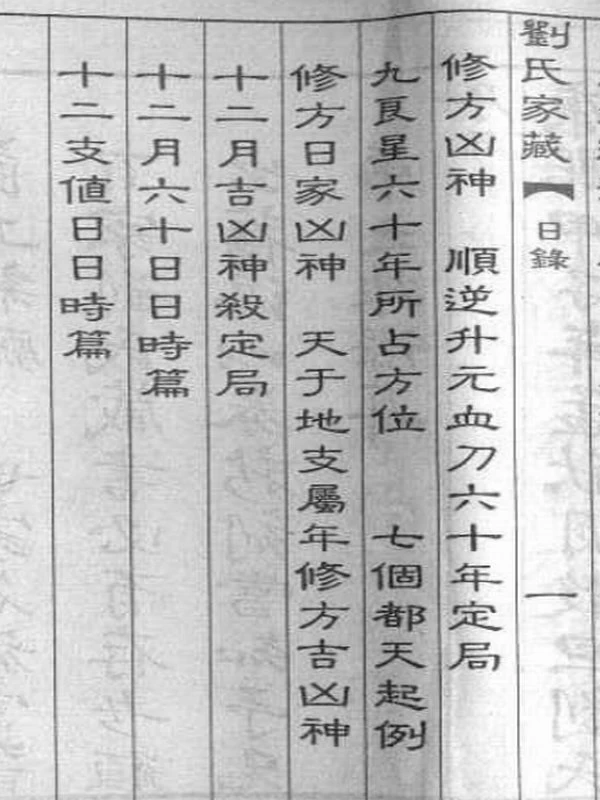 劉氏家藏【目錄 一
修方凶神 順逆升元血刀六十年定局
九艮星六十年所占方位 七個都天起例
修方日家凶神 天于地支屬年修方吉凶神
十二月吉凶神殺定局
十二月六十日日時篇
十二支值日日時篇